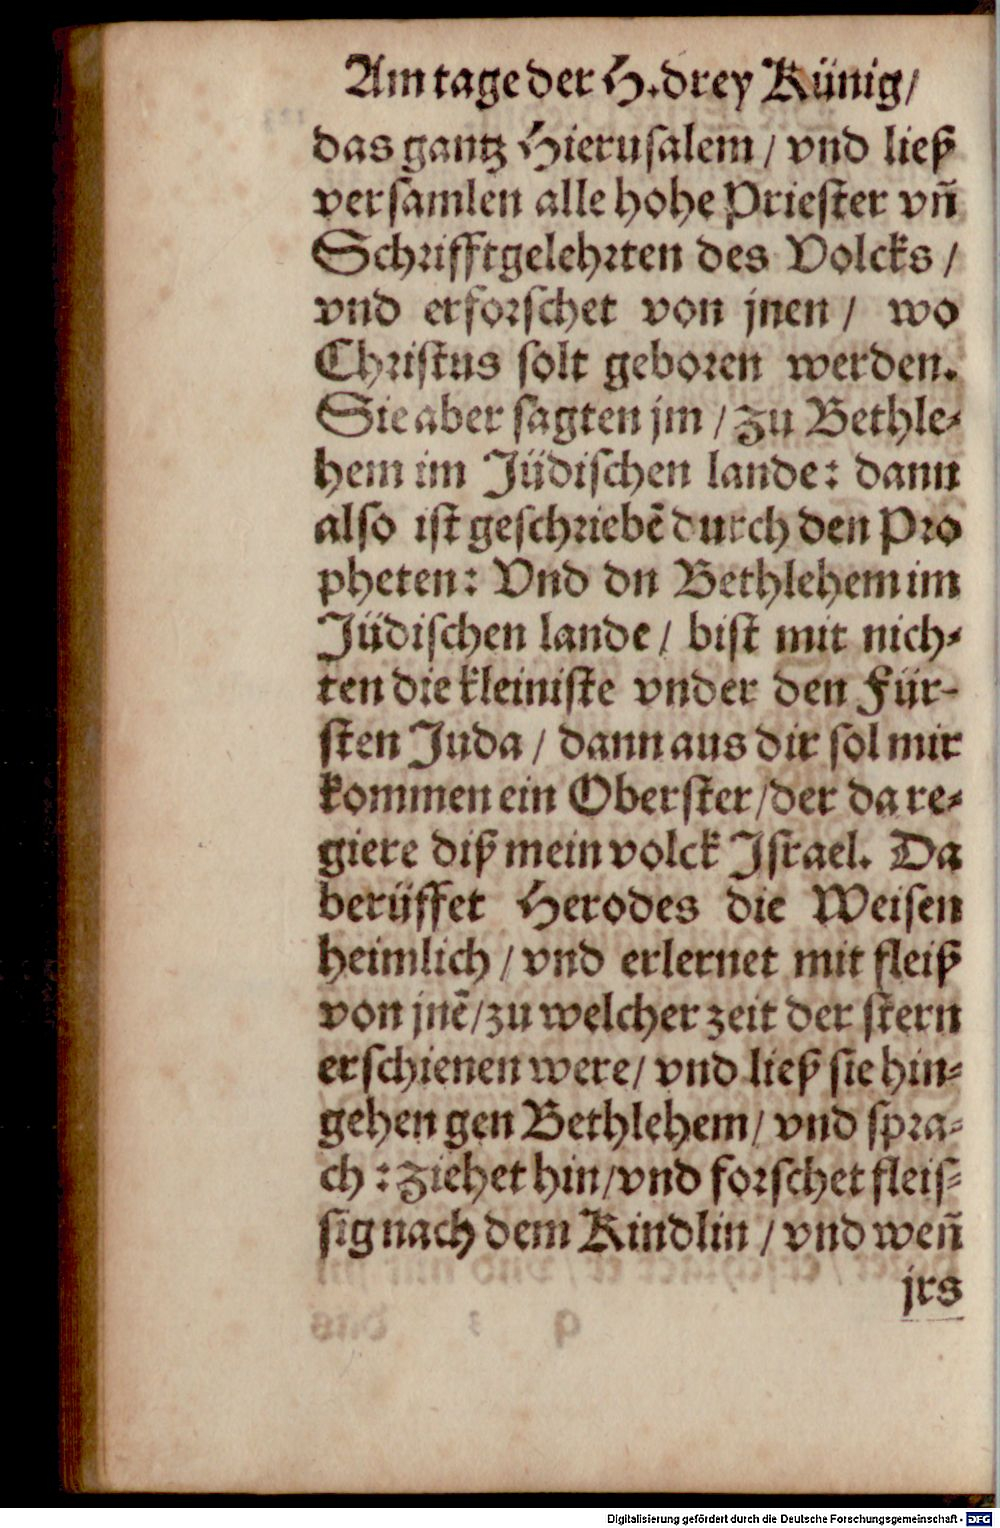 Am tage der H. drey Künig/
das gantz Hierusalem / vnd ließ
versamlen alle hohe Priester vñ
Schrifftgelehrten des Volcks /
vnd erforschet von jnen / wo
Christus solt geboren werden.
Sie aber sagten jm / zu Bethle-
hem im Jüdischen lande: dann
also ist geschriebẽ durch den Pro
pheten: Vnd dn Bethlehem im
Jüdischen lande / bist mit nich-
ten die kleiniste vnder den Für-
sten Juda / dann aus dir sol mir
kommen ein Oberster/der da re-
giere diß mein volck Israel. Da
berüffet Herodes die Weisen
heimlich / vnd erlernet mit fleiß
von jnẽ/zu welcher zeit der stern
erschienen were/ vnd ließ sie hin-
gehen gen Bethlehem/ vnd spra-
ch: ziehet hin/vnd forschet fleis-
sig nach dem Kindlin / vnd weñ
jrs
Digitalisierung gefördert durch die Deutsche Forschungsgemeinschaft - DFG